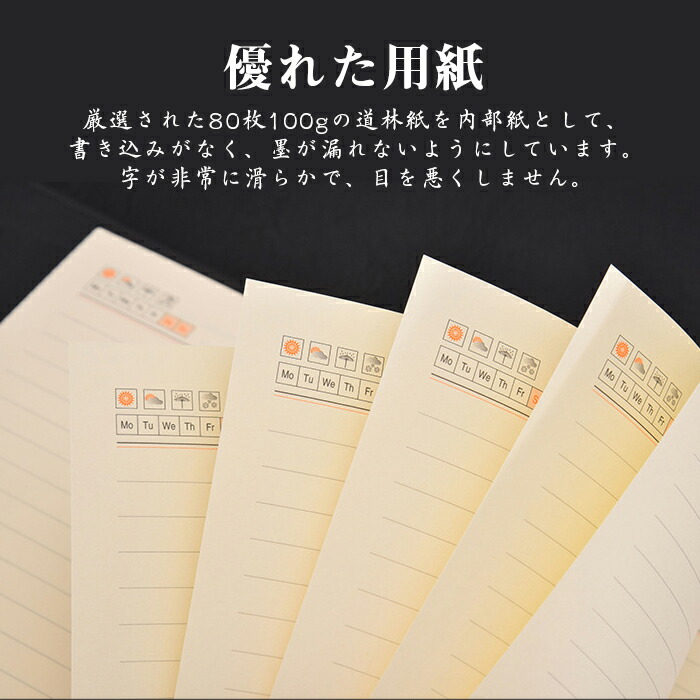 優れた用紙
厳選された80枚100gの道林紙を内部紙として、
書き込みがなく、墨が漏れないようにしています。
字が非常に滑らかで、目を悪くしません。
Mo Tu We Th Fr
Mo Tu We Th Fr
Mo Tu We Th Fr S
Mo Tu We Th Fr